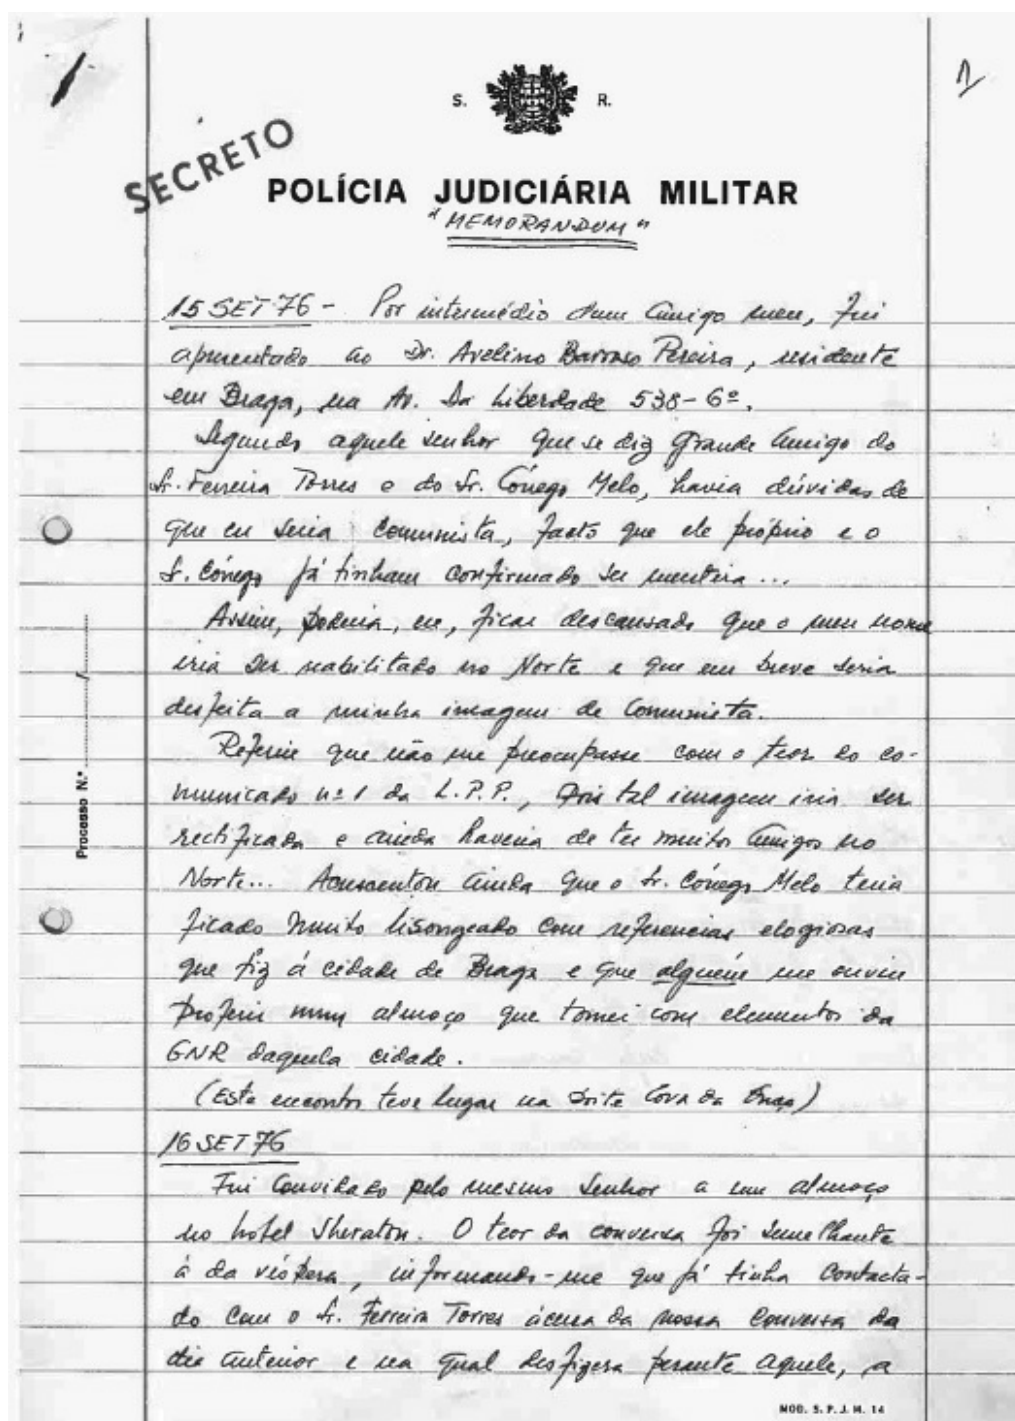 1
S. R.
SECRETO
POLÍCIA JUDICIÁRIA MILITAR
"MEMORANDUM"
15 SET 76 - Por intermédio dum Amigo meu, fui
apresentado ao Dr. Avelino Barroso Pereira, residente
em Braga, na Av. Da Liberdade 538-6º.
Segundo aquele senhor que se diz grande Amigo do
Sr. Ferreira Torres e do Sr. Cónego Melo, havia dúvidas de
que eu seria comunista, facto que ele próprio e o
Sr. Cónego já tinham confirmado ser mentira...
Assim, poderia, eu, ficar descansado que o meu nome
iria ser reabilitado no Norte e que em breve seria
desfeita a minha imagem de Comunista.
Referiu que não me preocupasse com o teor do co-
municado nº 1 da L.P.P., pois tal imagem iria ser
rectificada e ainda haveria de ter muitos Amigos no
Norte... Acrescentou ainda que o Sr. Cónego Melo teria
ficado muito lisongeado com referencias elogiosas
que fiz á cidade de Braga e que alguém me ouviu
proferir num almoço que tomei com elementos da
GNR daquela cidade.
(Este encontro teve lugar na Boite Cova da Onça)
16 SET 76
Fui Convidado pelo mesmo Senhor a um almoço
no hotel Sheraton. O teor da conversa foi semelhante
á da véspera, informando-me que já tinha Contacta-
do com o Sr. Ferreira Torres ácerca da nossa Conversa do
dia anterior e na qual desfizera perante aquele, a
Processo N.º / 
MOD. S. P. J. M. 14